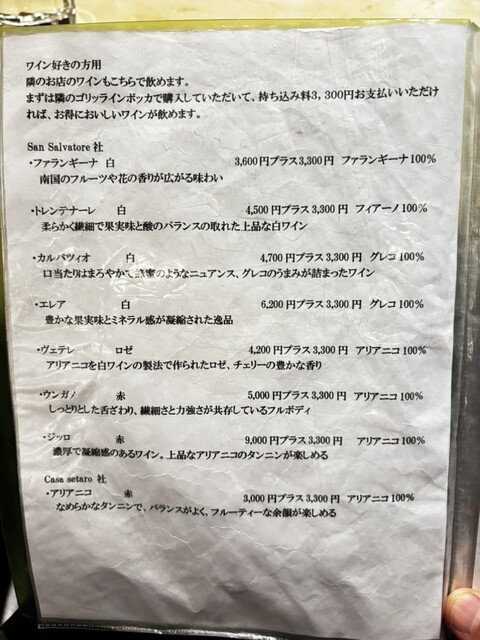 ワイン好きの方用
隣のお店のワインもこちらで飲めます。
まずは隣のゴリッラインボッカで購入していただいて、持ち込み料3,300円お支払いいただけ
れば、お得においしいワインが飲めます。
San Salvatore 社
・ファランギーナ 白 3,600円プラス3,300円 ファランギーナ100%
南国のフルーツや花の香りが広がる味わい
・トレンテナーレ 白 4,500円プラス3,300円 フィアーノ100%
柔らかく繊細で果実味と酸のバランスの取れた上品な白ワイン
・カルパツィオ 白 4,700円プラス3,300円 グレコ100%
口当たりはまろやかで蜂蜜のようなニュアンス、グレコのうまみが詰まったワイン
・エレア 白 6,200円プラス3,300円 グレコ100%
豊かな果実味とミネラル感が凝縮された逸品
・ヴェテレ ロゼ 4,200円プラス3,300円 アリアニコ100%
アリアニコを白ワインの製法で作られたロゼ、チェリーの豊かな香り
・ウンガノ 赤 5,000円プラス3,300円 アリアニコ100%
しっとりとした舌ざわり、繊細さと力強さが共存しているフルボディ
・ジッロ 赤 9,000円プラス3,300円 アリアニコ100%
濃厚で凝縮感のあるワイン。上品なアリアニコのタンニンが楽しめる
Casa setaro 社
・アリアニコ 赤 3,000円プラス3,300円 アリアニコ100%
なめらかなタンニンで、バランスがよく、フルーティーな余韻が楽しめる